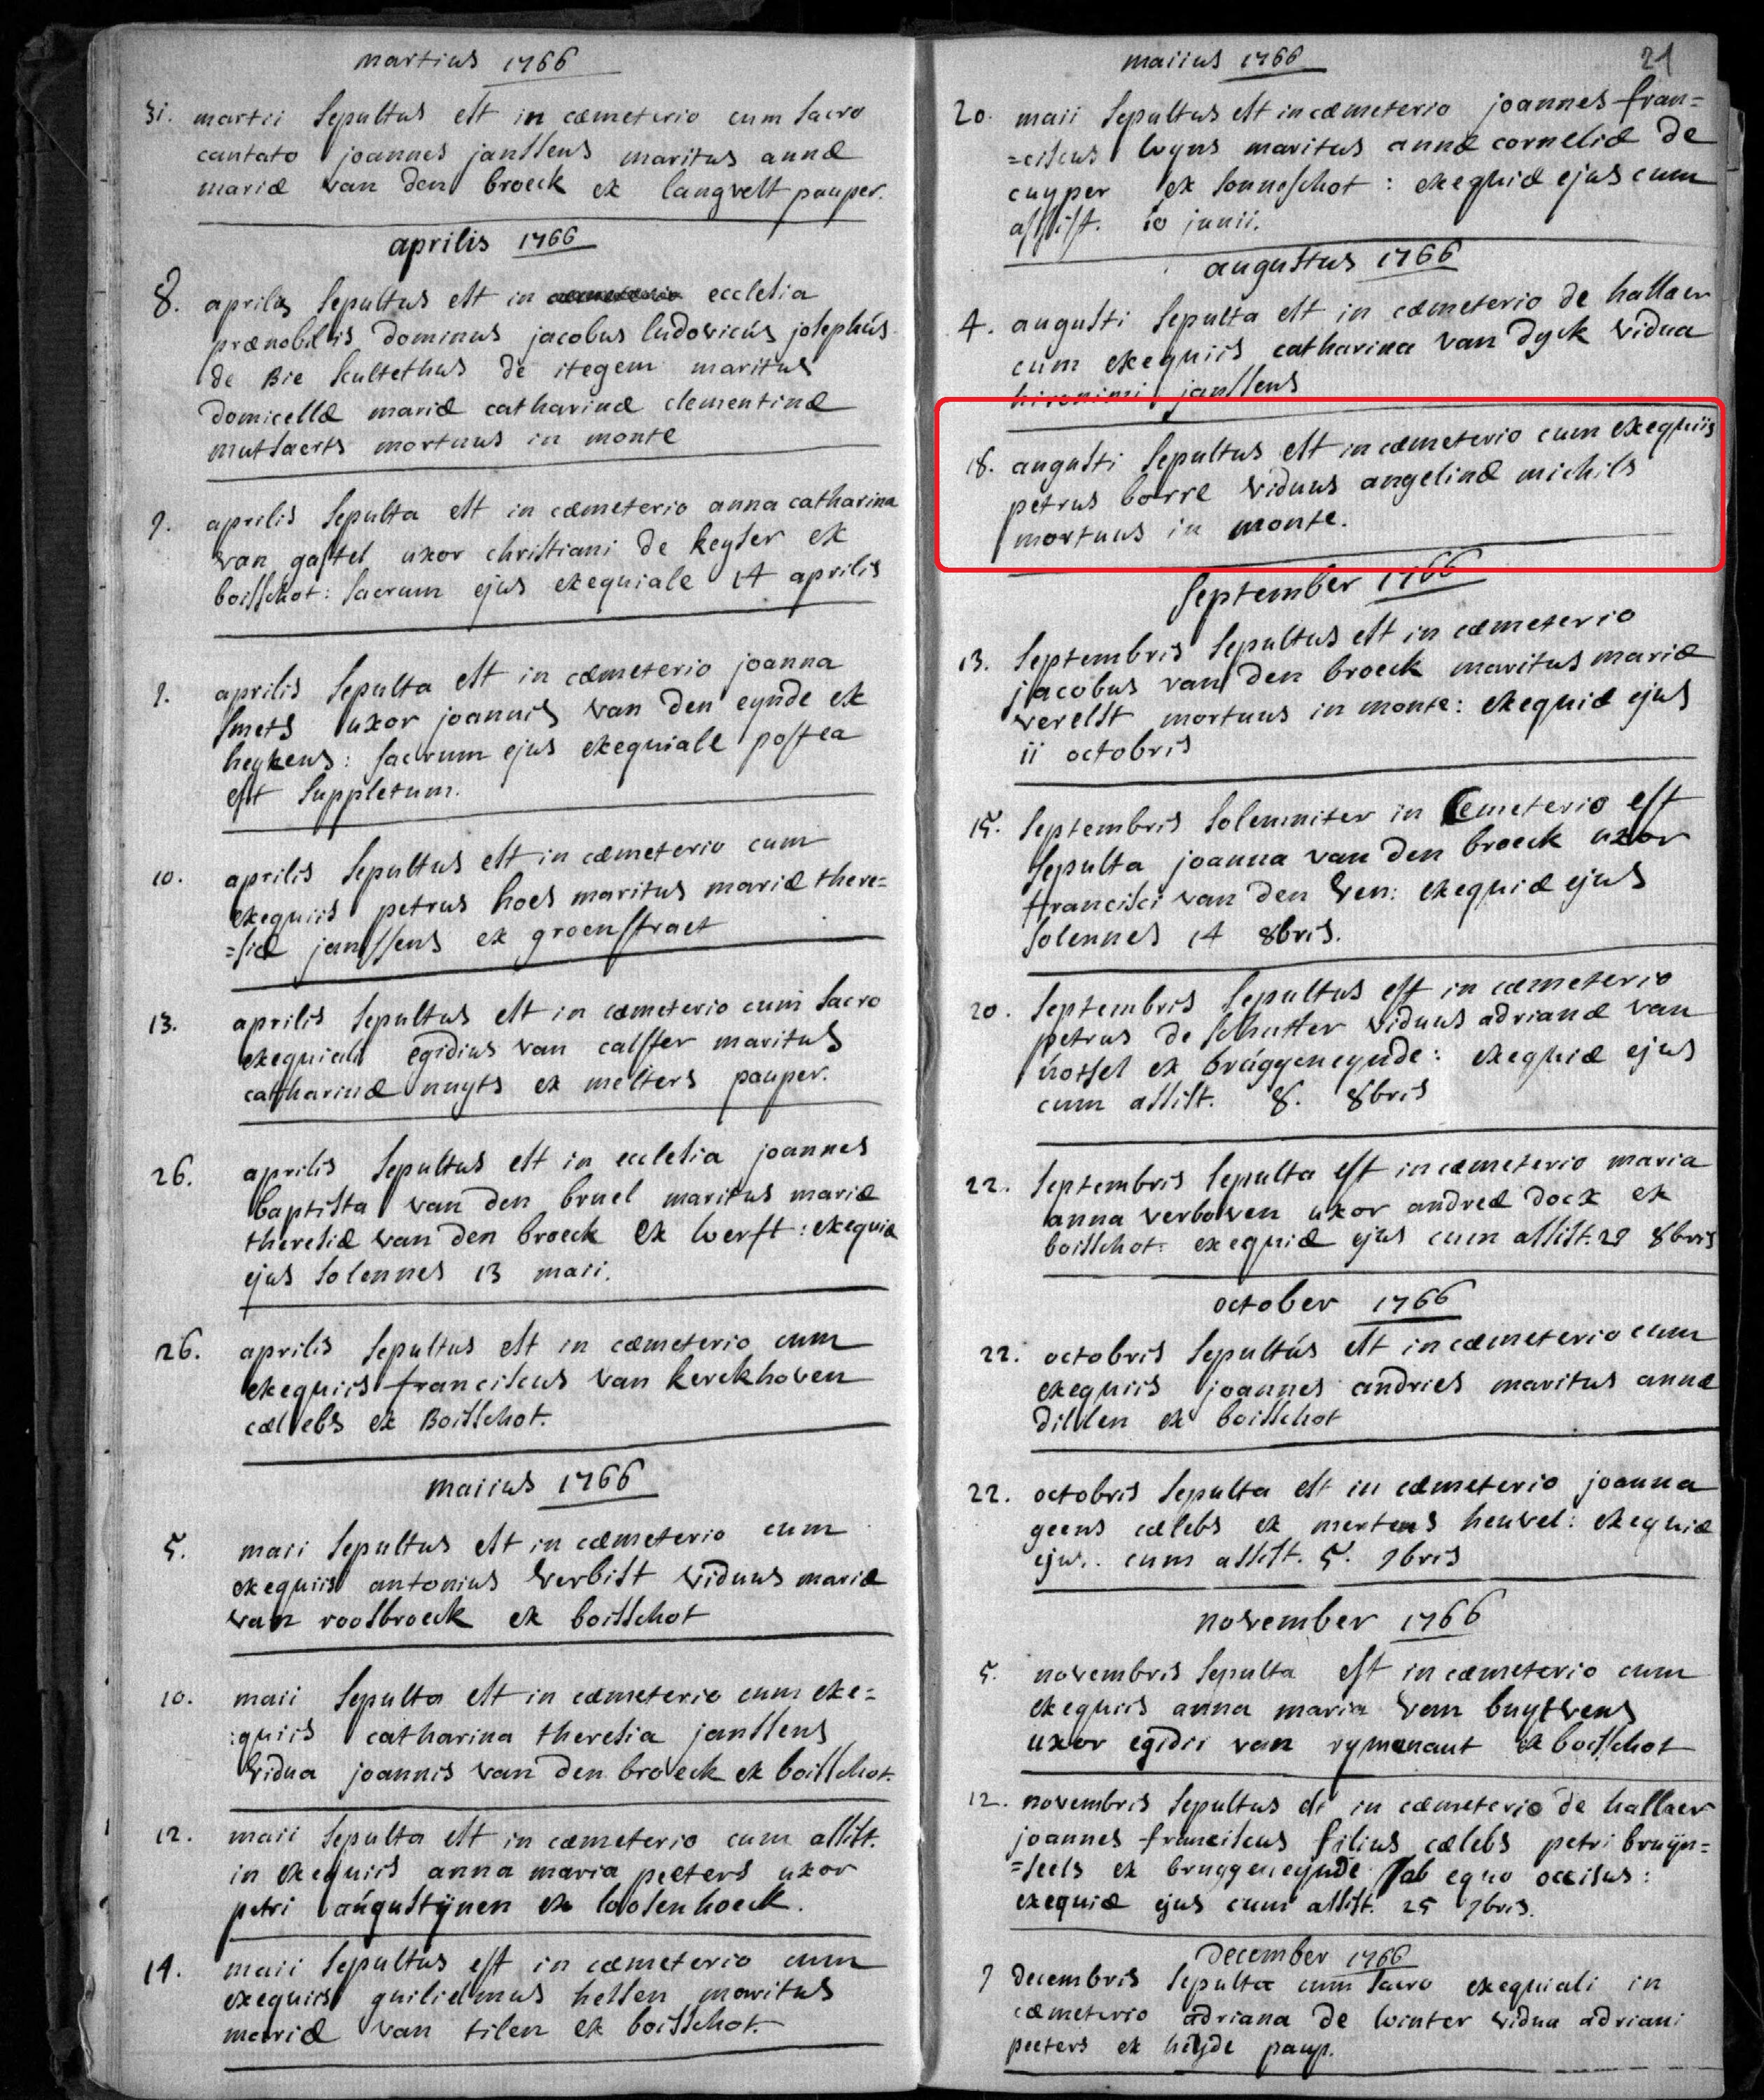 martius 1766
31. martii sepultus est in cæmeterio cum sacro
cantato joannes janssens maritus annæ
mariæ van den broeck ex langvelt pauper.
aprilis 1766
8. aprilis sepultus est in ecclesia
prænobilis dominus jacobus ludovicús josephús
de Bie scultethus de itegem maritus
domicellæ mariæ catharinæ clementinæ
mutsaerts mortuus in monte
9. aprilis sepulta est in cæmeterio anna catharina
van gastel uxor christiani de keyser ex
boisschot: sacrum ejus exequiale 14 aprilis
9. aprilis sepulta est in cæmeterio joanna
smets uxor joannis van den eynde ex
heykens: sacrum ejus exequiale postea
est suppletum.
10. aprilis sepultus est in cæmeterio cum
exequiis petrus hoes maritus mariæ there=
=siæ janssens ex groenstraet
13. aprilis sepultus est in cæmeterio cum sacro
exequiali egidius van calster maritus
catharinæ nuyts ex melters pauper.
26. aprilis sepultus est in ecclesia joannes
baptista van den bruel maritus mariæ
theresiæ van den broeck ex werft: exequiæ
ejus solennes 13 maii.
26. aprilis sepultus est in cæmeterio cum
exequiis franciscus van kerckhoven
cælebs ex Boisschot.
maiius 1766
5. maii sepultus est in cæmeterio cum
exequiis antonius verbist viduus mariæ
van roosbroeck ex boisschot
10. maii sepulta est in cæmeterio cum exe=
:quiis catharina theresia janssens
vidua joannis van den broeck ex boisschot.
12. maii sepulta est in cæmeterio cum assist.
in exequiis anna maria peeters uxor
petri aúgustijnen ex loosenhoeck.
14. maii sepultus est in cæmeterio cum
exequiis guilielmus helsen maritus
mariæ van tilen ex boisschot.
maiius 1766
21
20. maii sepultus est in cæmeterio joannes fran=
=ciscus wyns maritus annæ corneliæ de
cuyper ex sonneschot: exequiæ ejus cum
assist. 10 junii.
augustus 1766
4. augusti sepulta est in cæmeterio de hallaer
cum exequiis catharina van dyck vidua
hironimi janssens
18. augusti sepultus est in cæmeterio cum exequiis
petrus borre viduus angelinæ michils
mortuus in monte.
september 1766
13. septembris sepultus est in cæmeterio
jacobus van den broeck maritus mariæ
verelst mortuus in monte: exequiæ ejus
11 octobris
15. septembris solemniter in Cemeterio est
sepulta joanna van den broeck uxor
francisci van den ven: exequiæ ejus
solennes 14 8bris.
20. septembris sepultus est in cæmeterio
petrus de schutter viduus adrianæ van
úotsel ex brúggeneynde: exequiæ ejus
cum assist. 8. 8bris
22. septembris sepulta est in cæmeterio maria
anna verboven uxor andreæ docx ex
boisschot: exequiæ ejus cum assist. 29 8bris
october 1766
22. octobris sepultús est in cæmeterio cum
exequiis joannes andries maritus annæ
dillen ex boisschot
22. octobris sepulta est in cæmeterio joanna
geens cælebs ex mertens heuvel: exequiæ
ejus. cum assist. 5. 9bris
november 1766
5. novembris sepulta est in cæmeterio cum
exequiis anna maria van buytvens
uxor egidii van rymenant ex boisschot
12. novembris sepultus est in cæmeterio de hallaer
joannes franciscus filius cælebs petri bruijn=
=seels ex bruggeneynde ab equo occisus:
exequiæ ejus cum assist. 25 9bris.
december 1766
9 decembris sepulta cum sacro exequiali in
cæmeterio adriana de winter vidua adriani
peeters ex heyde paup.